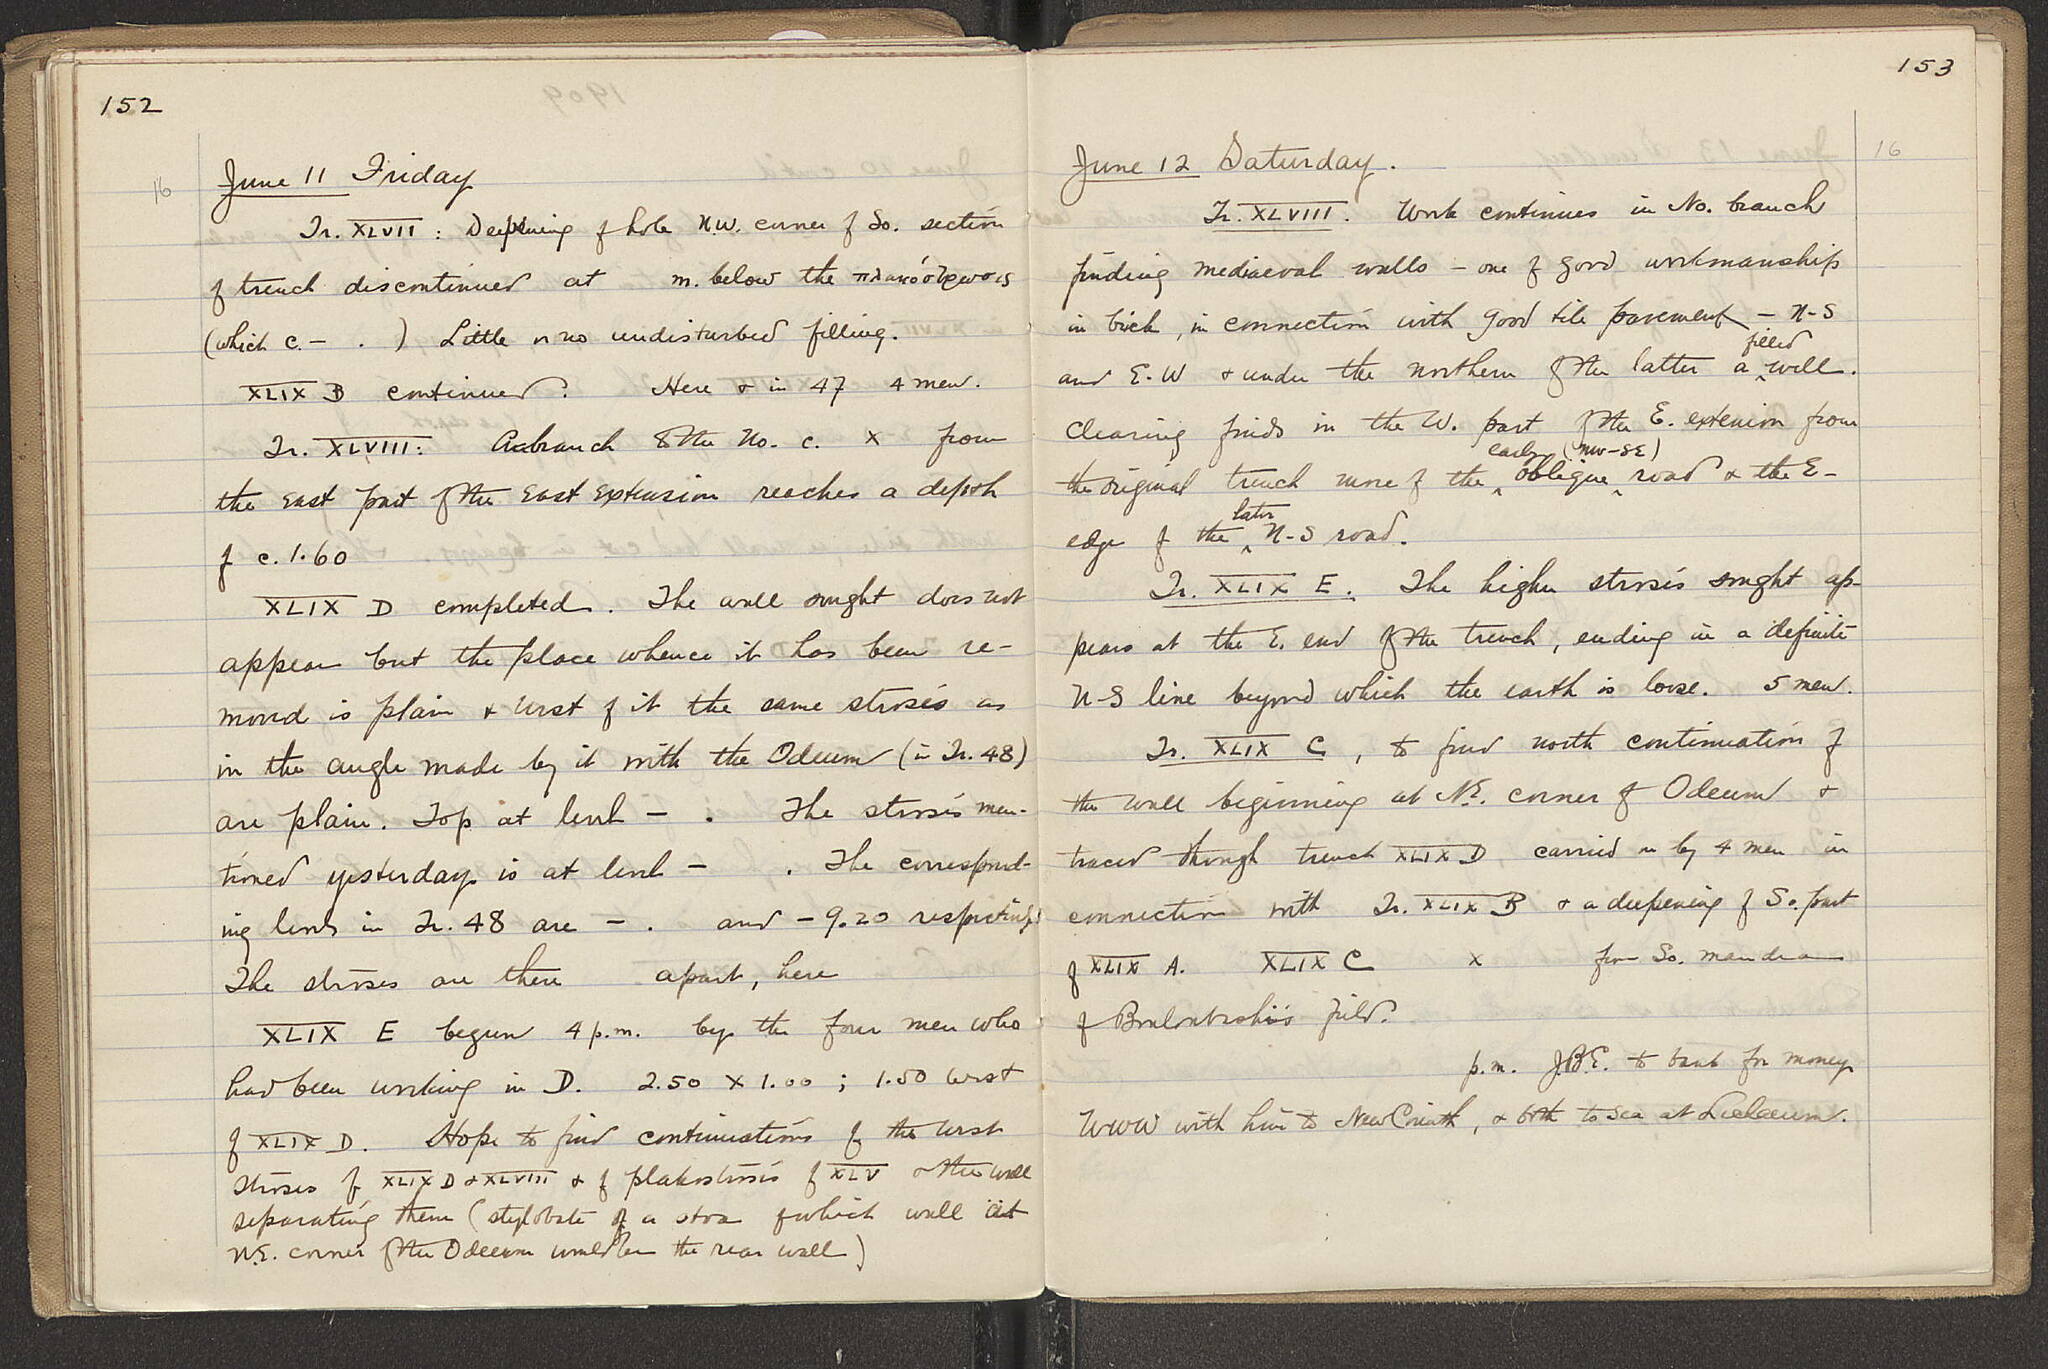 152
16
June 11 Friday
Tr. XLVII: Deepening of hole N.W. corner of So. section
of trench discontinued at m. below the πλακόστρωσις
(which c. - . ) Little or no undisturbed filling.
XLIX B continued. Here & in 47 4 men.
Tr. XLVIII: A branch to the No. c. x from
the East part of the East Extension reaches a depth
of c. 1.60
XLIX D completed. The wall sought does not
appear but the place whence it has been re-
moved is plain & west of it the same strosis as
in the angle made by it with the Odeum (in Tr. 48)
are plain. Top at level - . The strosis men-
tioned yesterday is at level - . The correspond-
ing levels in Tr. 48 are - . and - 9.20 respectively
The stroses are there apart, here
XLIX E begun 4 p.m. by the four men who
had been working in D. 2.50 x 1.00 ; 1.50 west
of XLIX D. Hope to find continuations of the west
stroses of XLIX D & XLVIII & of plakostrosis of XLV & the wall
separating them (stylobate of a stoa of which wall at
N.E. corner of the Odeum would be the rear wall)
153
16
June 12 Saturday.
Tr. XLVIII. Work continues in No. branch
finding mediaeval walls - one of good workmanship
in brick, in connection with good tile pavement - N-S
and E-W & under the northern of the latter a filled well.
Clearing finds in the W. part of the E. extension from
the original trench more of the early oblique (NW-SE) road & the E-
edge of the later N-S road.
Tr. XLIX E. The higher strosis sought ap-
pears at the E. end of the trench, ending in a definite
N-S line beyond which the earth is loose. 5 men.
Tr. XLIX C, to find north continuation of
the wall beginning at N.E. corner of Odeum &
traced through trench XLIX D carried on by 4 men in
connection with Tr. XLIX B & a deepening of So. part
of XLIX A. XLIX C x from So. mandra
of field.
p.m. J.B.E. to bank for money
WWW with him to New Corinth, & both to sea at Lechaeum.